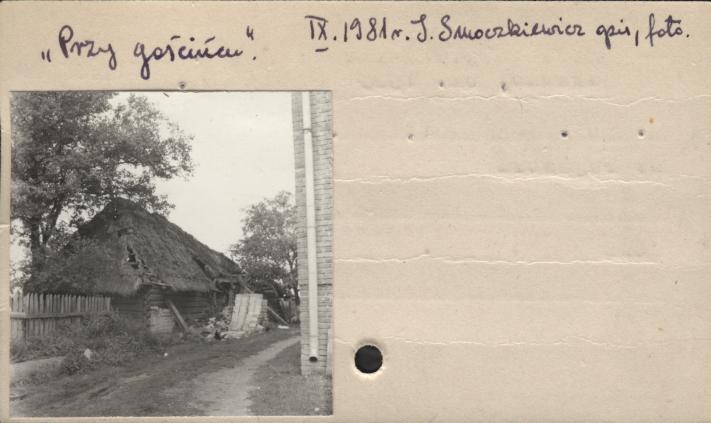 „Przy gościńcu".
IX. 1981 r. J. Smoczkiewicz opis, foto.